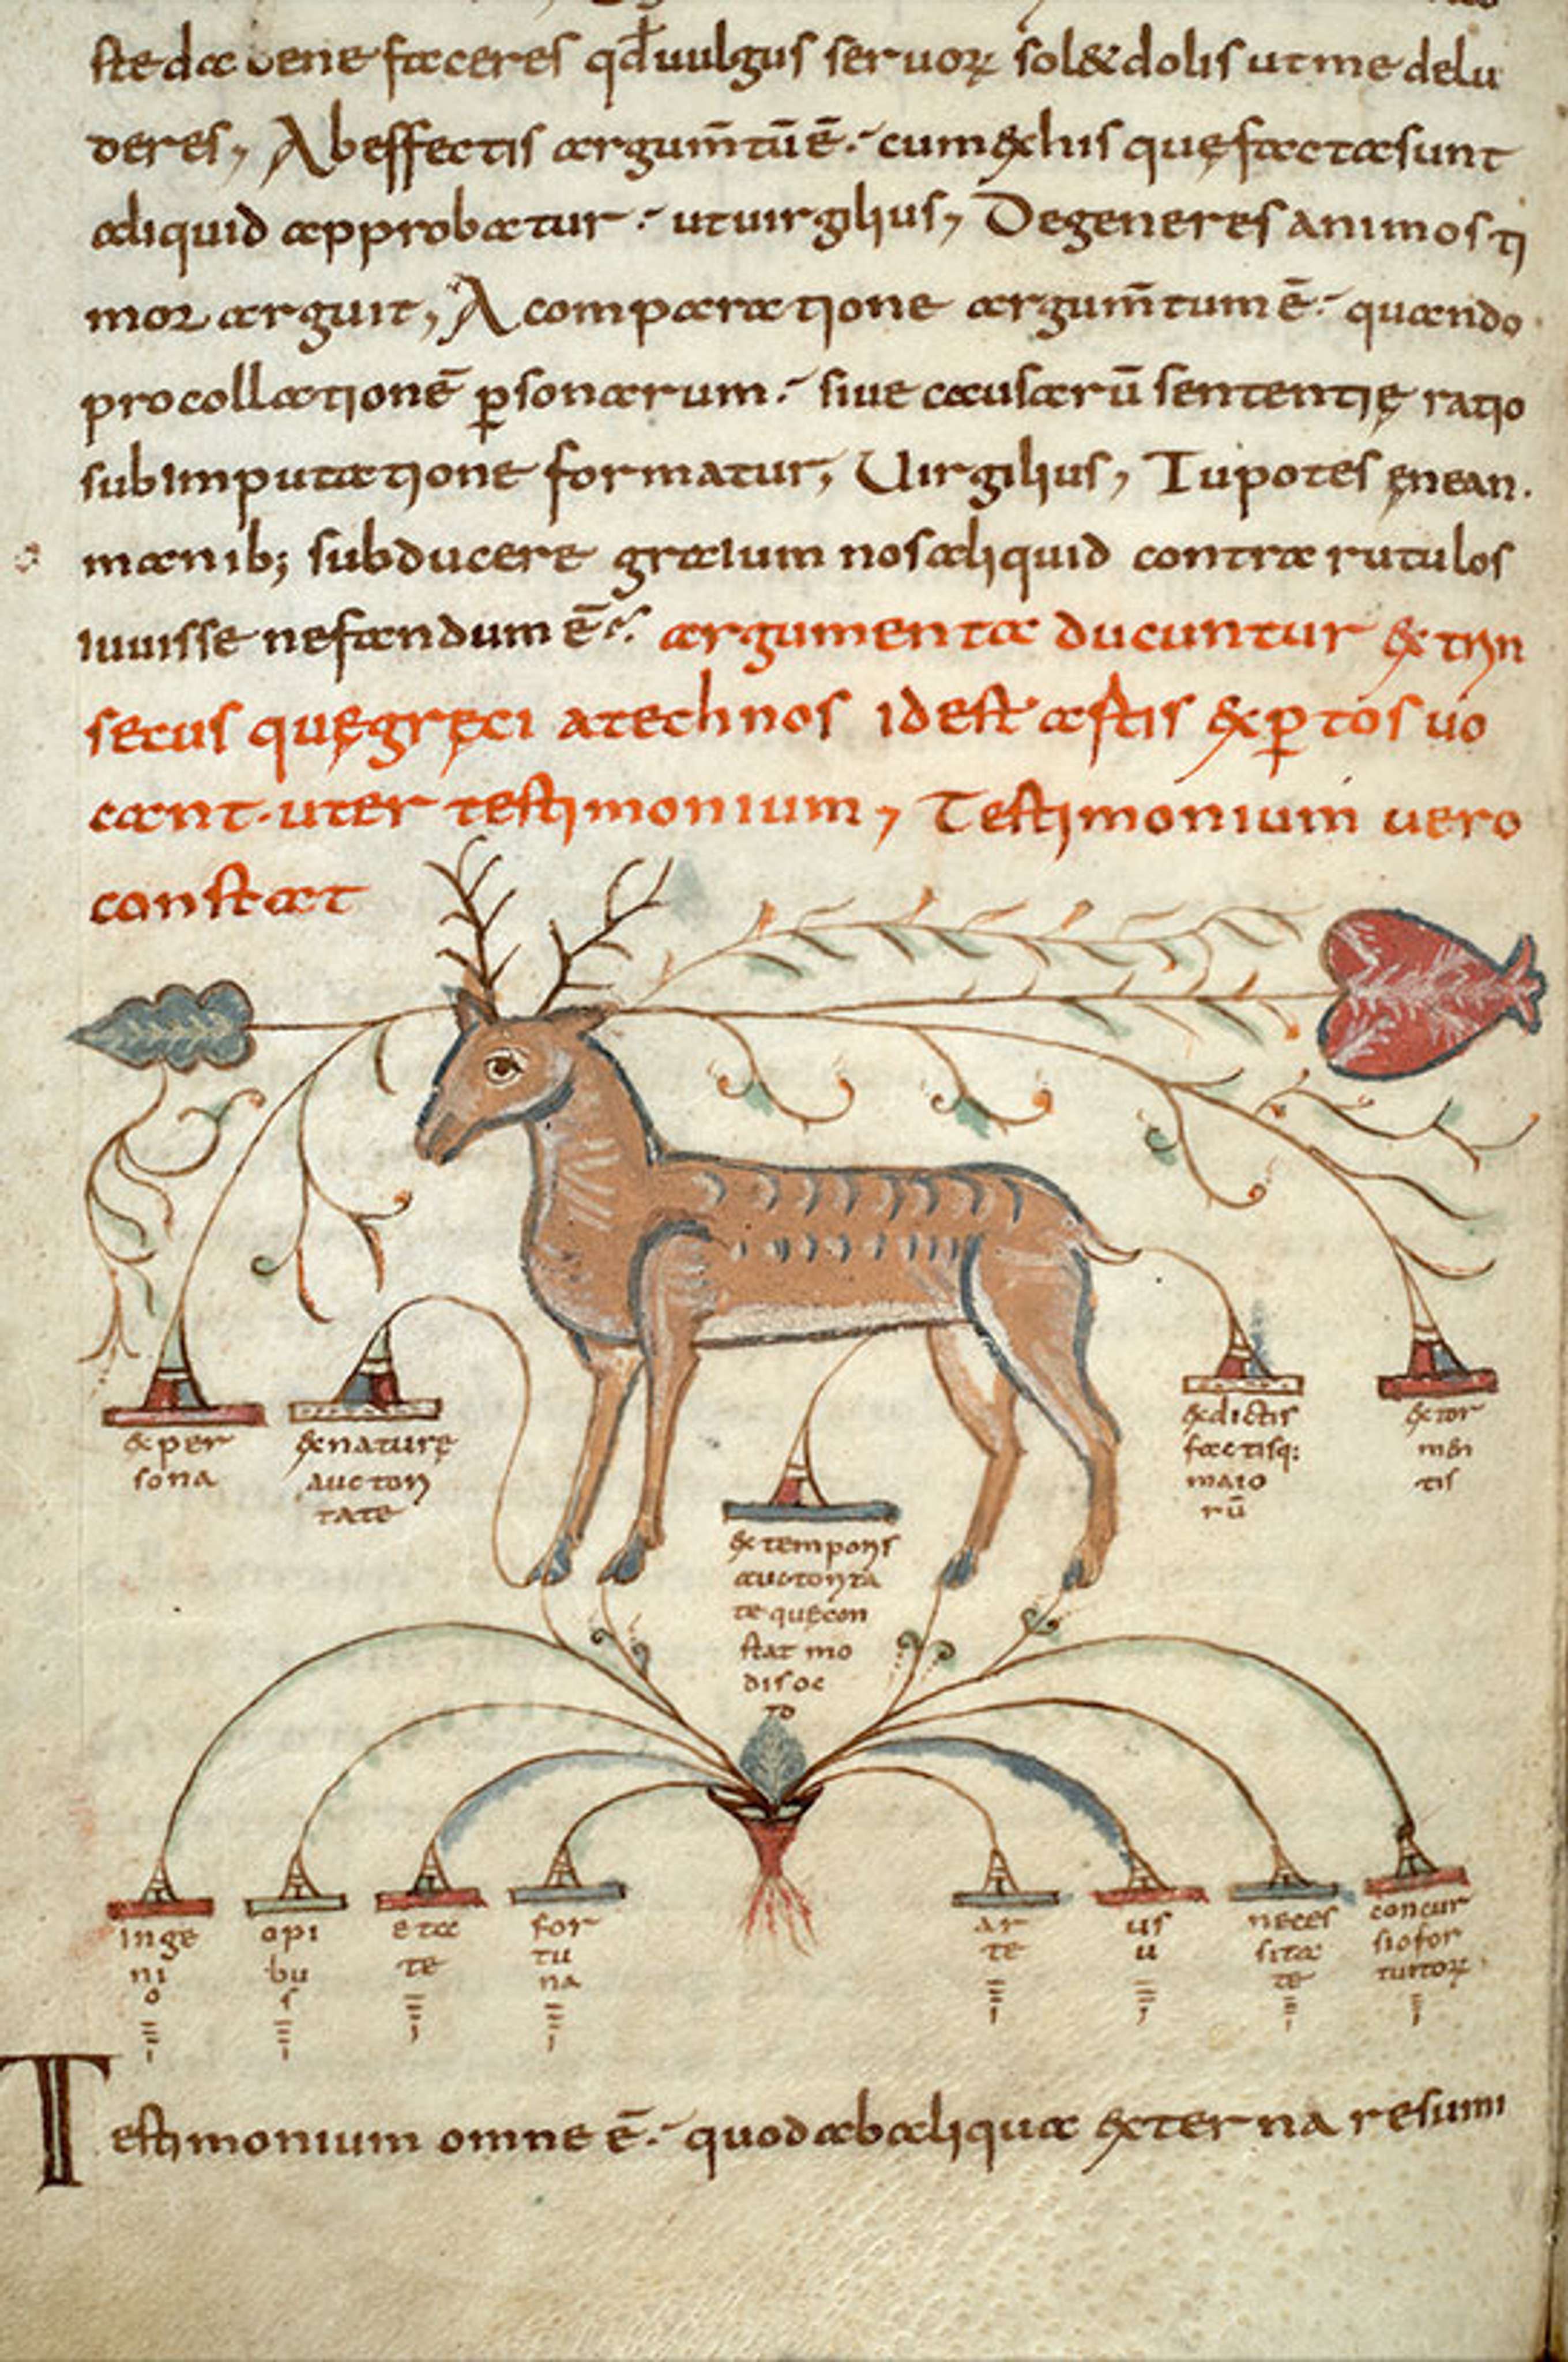 ste da bene faceres qđ uulgus seruoꝝ sol& dolis ut me delu
deres, Ab effectis argum̄tū ē. cum ex his quę facta sunt
aliquid approbatur. ut uirgilius, Degeneres animos ti
mor arguit, A comparatione argum̄tum ē. quando
pro collationē ꝑsonarum. siue causarū sententię ratio
sub imputatione formatur, Uirgilius, Tu potes ęnean.
manib; subducere graium nos aliquid contra rutulos
iuuisse nefandum ē. argumenta ducuntur extrin
secus quę gręci atechnos id est artis exꝑtos uo
cant. uter testimonium, Testimonium uero
constat
ex per
sona
ex naturę
auctori
tate
ex temporis
auctorita
te quę con
stat mo
dis oc
to
ex dictis
factisq:
maio
rū
ex tor
men
tis
inge
ni
o
opi
bu
s
eta
te
for
tu
na
ar
te
us
u
neces
sita
te
concur
sio for
tuitoꝝ
Testimonium omne ē. quod ab aliqua externa re sumi